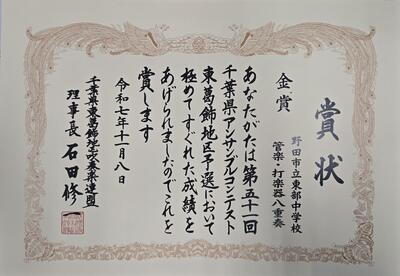 賞状
野田市立東部中学校
管楽・打楽器八重奏
金賞
あなたがたは第五十一回
千葉県アンサンブルコンテスト
東葛飾地区予選において
極めてすぐれた成績を
あげられましたのでこれを
賞します
令和七年十一月八日
千葉県東葛飾地区吹奏楽連盟
理事長 石田修一